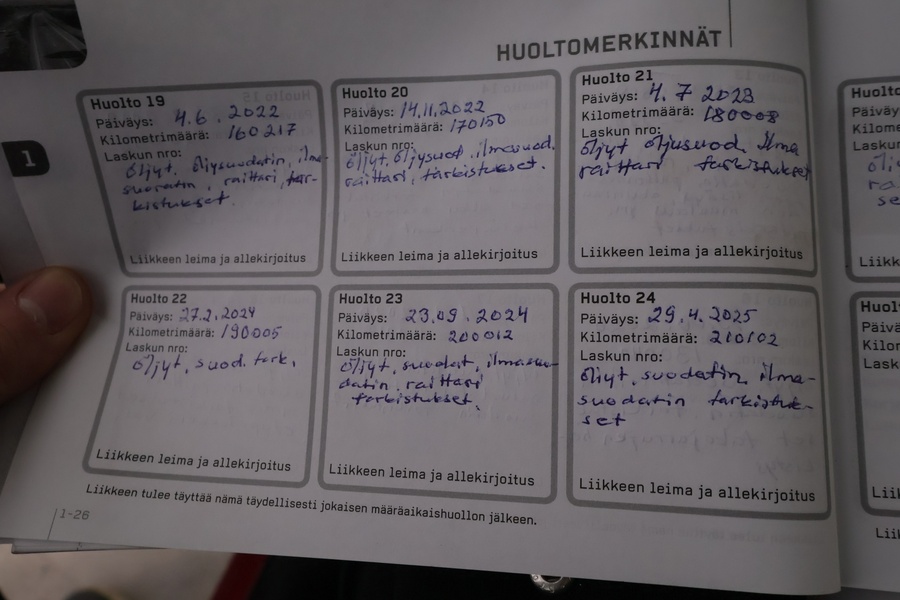 HUOLTOMERKINNÄT
1
Huolto 19
Päiväys: 4.6.2022
Kilometrimäärä: 160217
Laskun nro:
öljyt, öljysuodatin, ilma-
suodatin, raittari, tar-
kistukset.
Liikkeen leima ja allekirjoitus
Huolto 20
Päiväys: 14.11.2022
Kilometrimäärä: 170150
Laskun nro:
öljyt, öljysuod, ilmasuod.
raittari, tarkistukset.
Liikkeen leima ja allekirjoitus
Huolto 21
Päiväys: 4.7 2023
Kilometrimäärä: 180008
Laskun nro:
öljyt öljysuod. ilma
raittari tarkistukset
Liikkeen leima ja allekirjoitus
Huolto 22
Päiväys: 27.2.2024
Kilometrimäärä: 190005
Laskun nro:
öljyt, suod. tark.
Liikkeen leima ja allekirjoitus
Huolto 23
Päiväys: 23.09.2024
Kilometrimäärä: 200012
Laskun nro:
öljyt, suodat, ilmasuo-
datin, raittari
tarkistukset.
Liikkeen leima ja allekirjoitus
Huolto 24
Päiväys: 29.4.2025
Kilometrimäärä: 210102
Laskun nro:
öljyt, suodatin, ilma-
suodatin tarkistuk-
set
Liikkeen leima ja allekirjoitus
Liikkeen tulee täyttää nämä täydellisesti jokaisen määräaikaishuollon jälkeen.
1-26